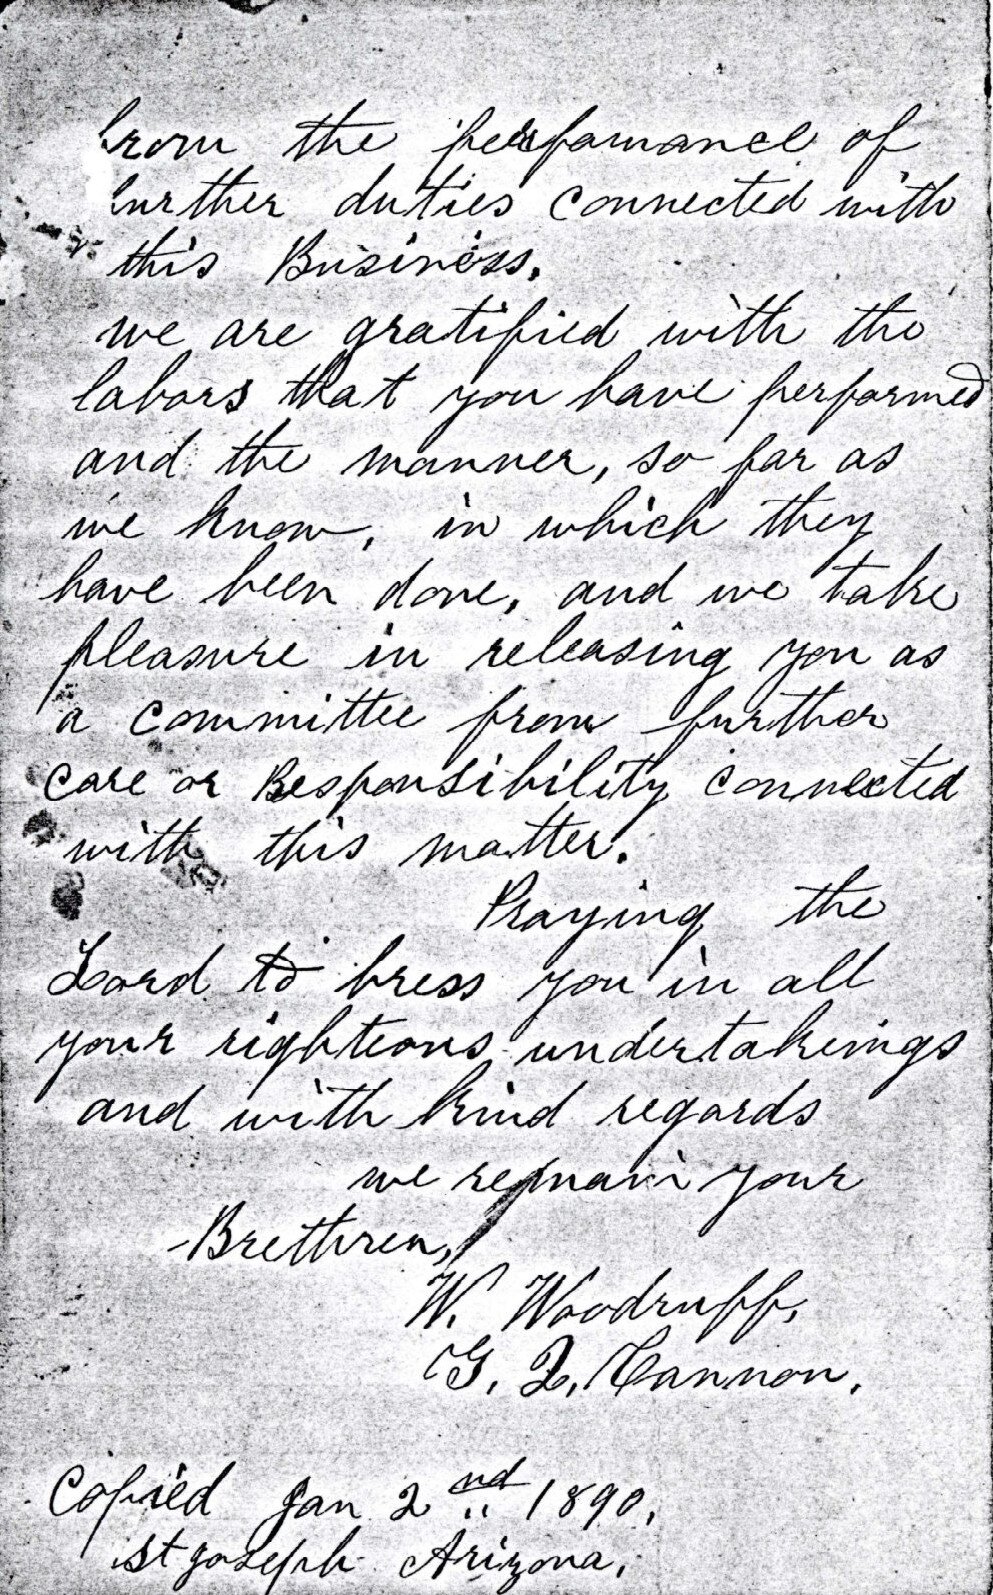 from the performance of
further duties connected with
this Business.
we are gratified with the
labors that you have performed
and the manner, so far as
we know, in which they
have been done, and we take
pleasure in releasing you as
a committee from further
care or Responsibility connected
with this matter.
Praying the
Lord to bress you in all
your righteous undertakeings
and with kind regards
we remain your
Brethren,
W. Woodruff,
G. Q. Cannon,
Copied Jan 2nd 1890,
St Joseph Arizona,